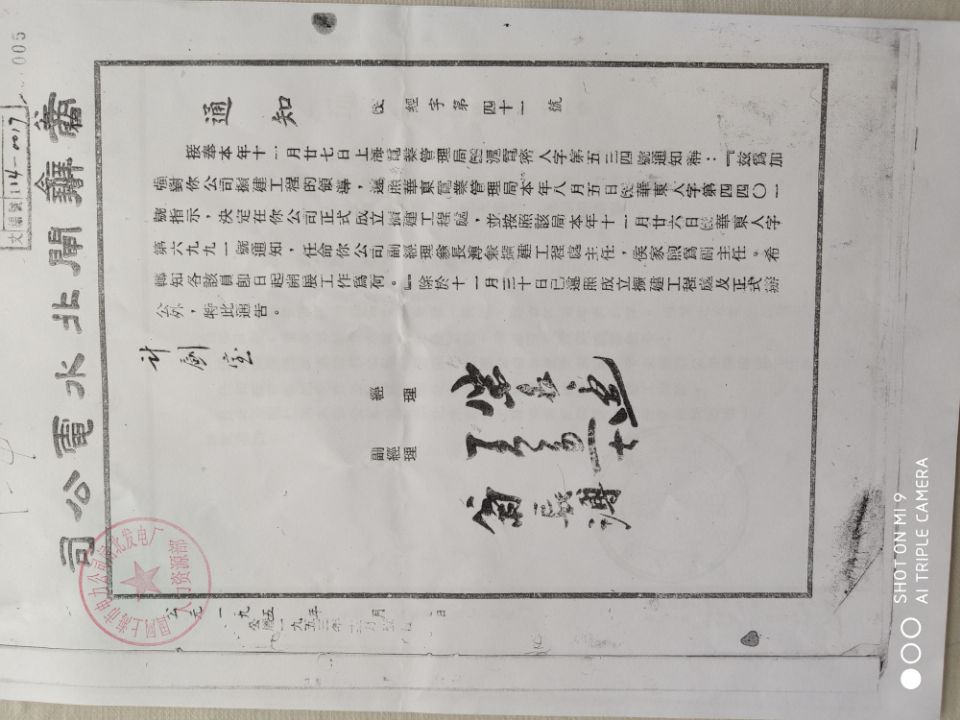 005
114-0017
商辦閘北水電公司
通知
經字第四十一號
接奉本年十一月廿七日上海電業管理局滬電密人字第五三四號通知稱:『茲為加
強對你公司擴建工程的領導,遵照華東電業管理局本年八月五日華東人字第四四〇一
號指示,決定在你公司正式成立擴建工程處,並按照該局本年十一月廿六日華東人字
第六九九一號通知,任命你公司副經理翁長溥兼擴建工程處主任,侯家煦為副主任。希
轉知各該員即日起開展工作為荷。』除於十一月三十日已遵照成立擴建工程處及正式辦
公外,特此通告。
計劍宝
經理
副經理
翁長溥
公元一九五
年
月
日
人力资源部
SHOT ON MI 9
AI TRIPLE CAMERA